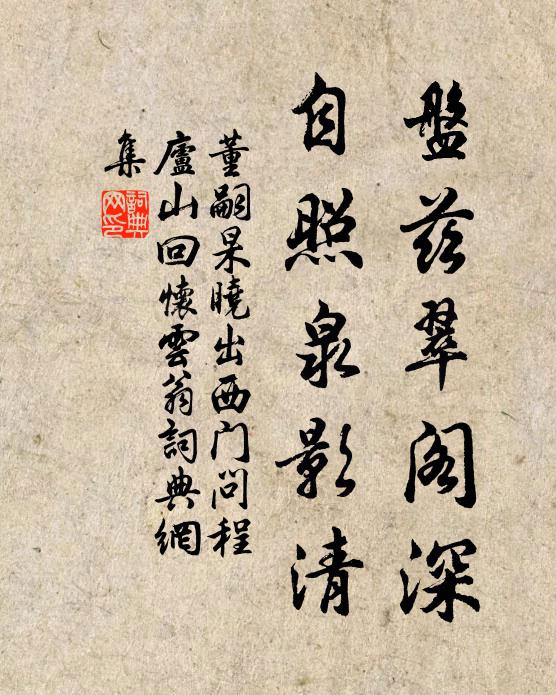 盤茲翠阁深
自照泉影清
董嗣杲曉出西门问程
廬山回懷雲翁詞典網
集
詞典
网印